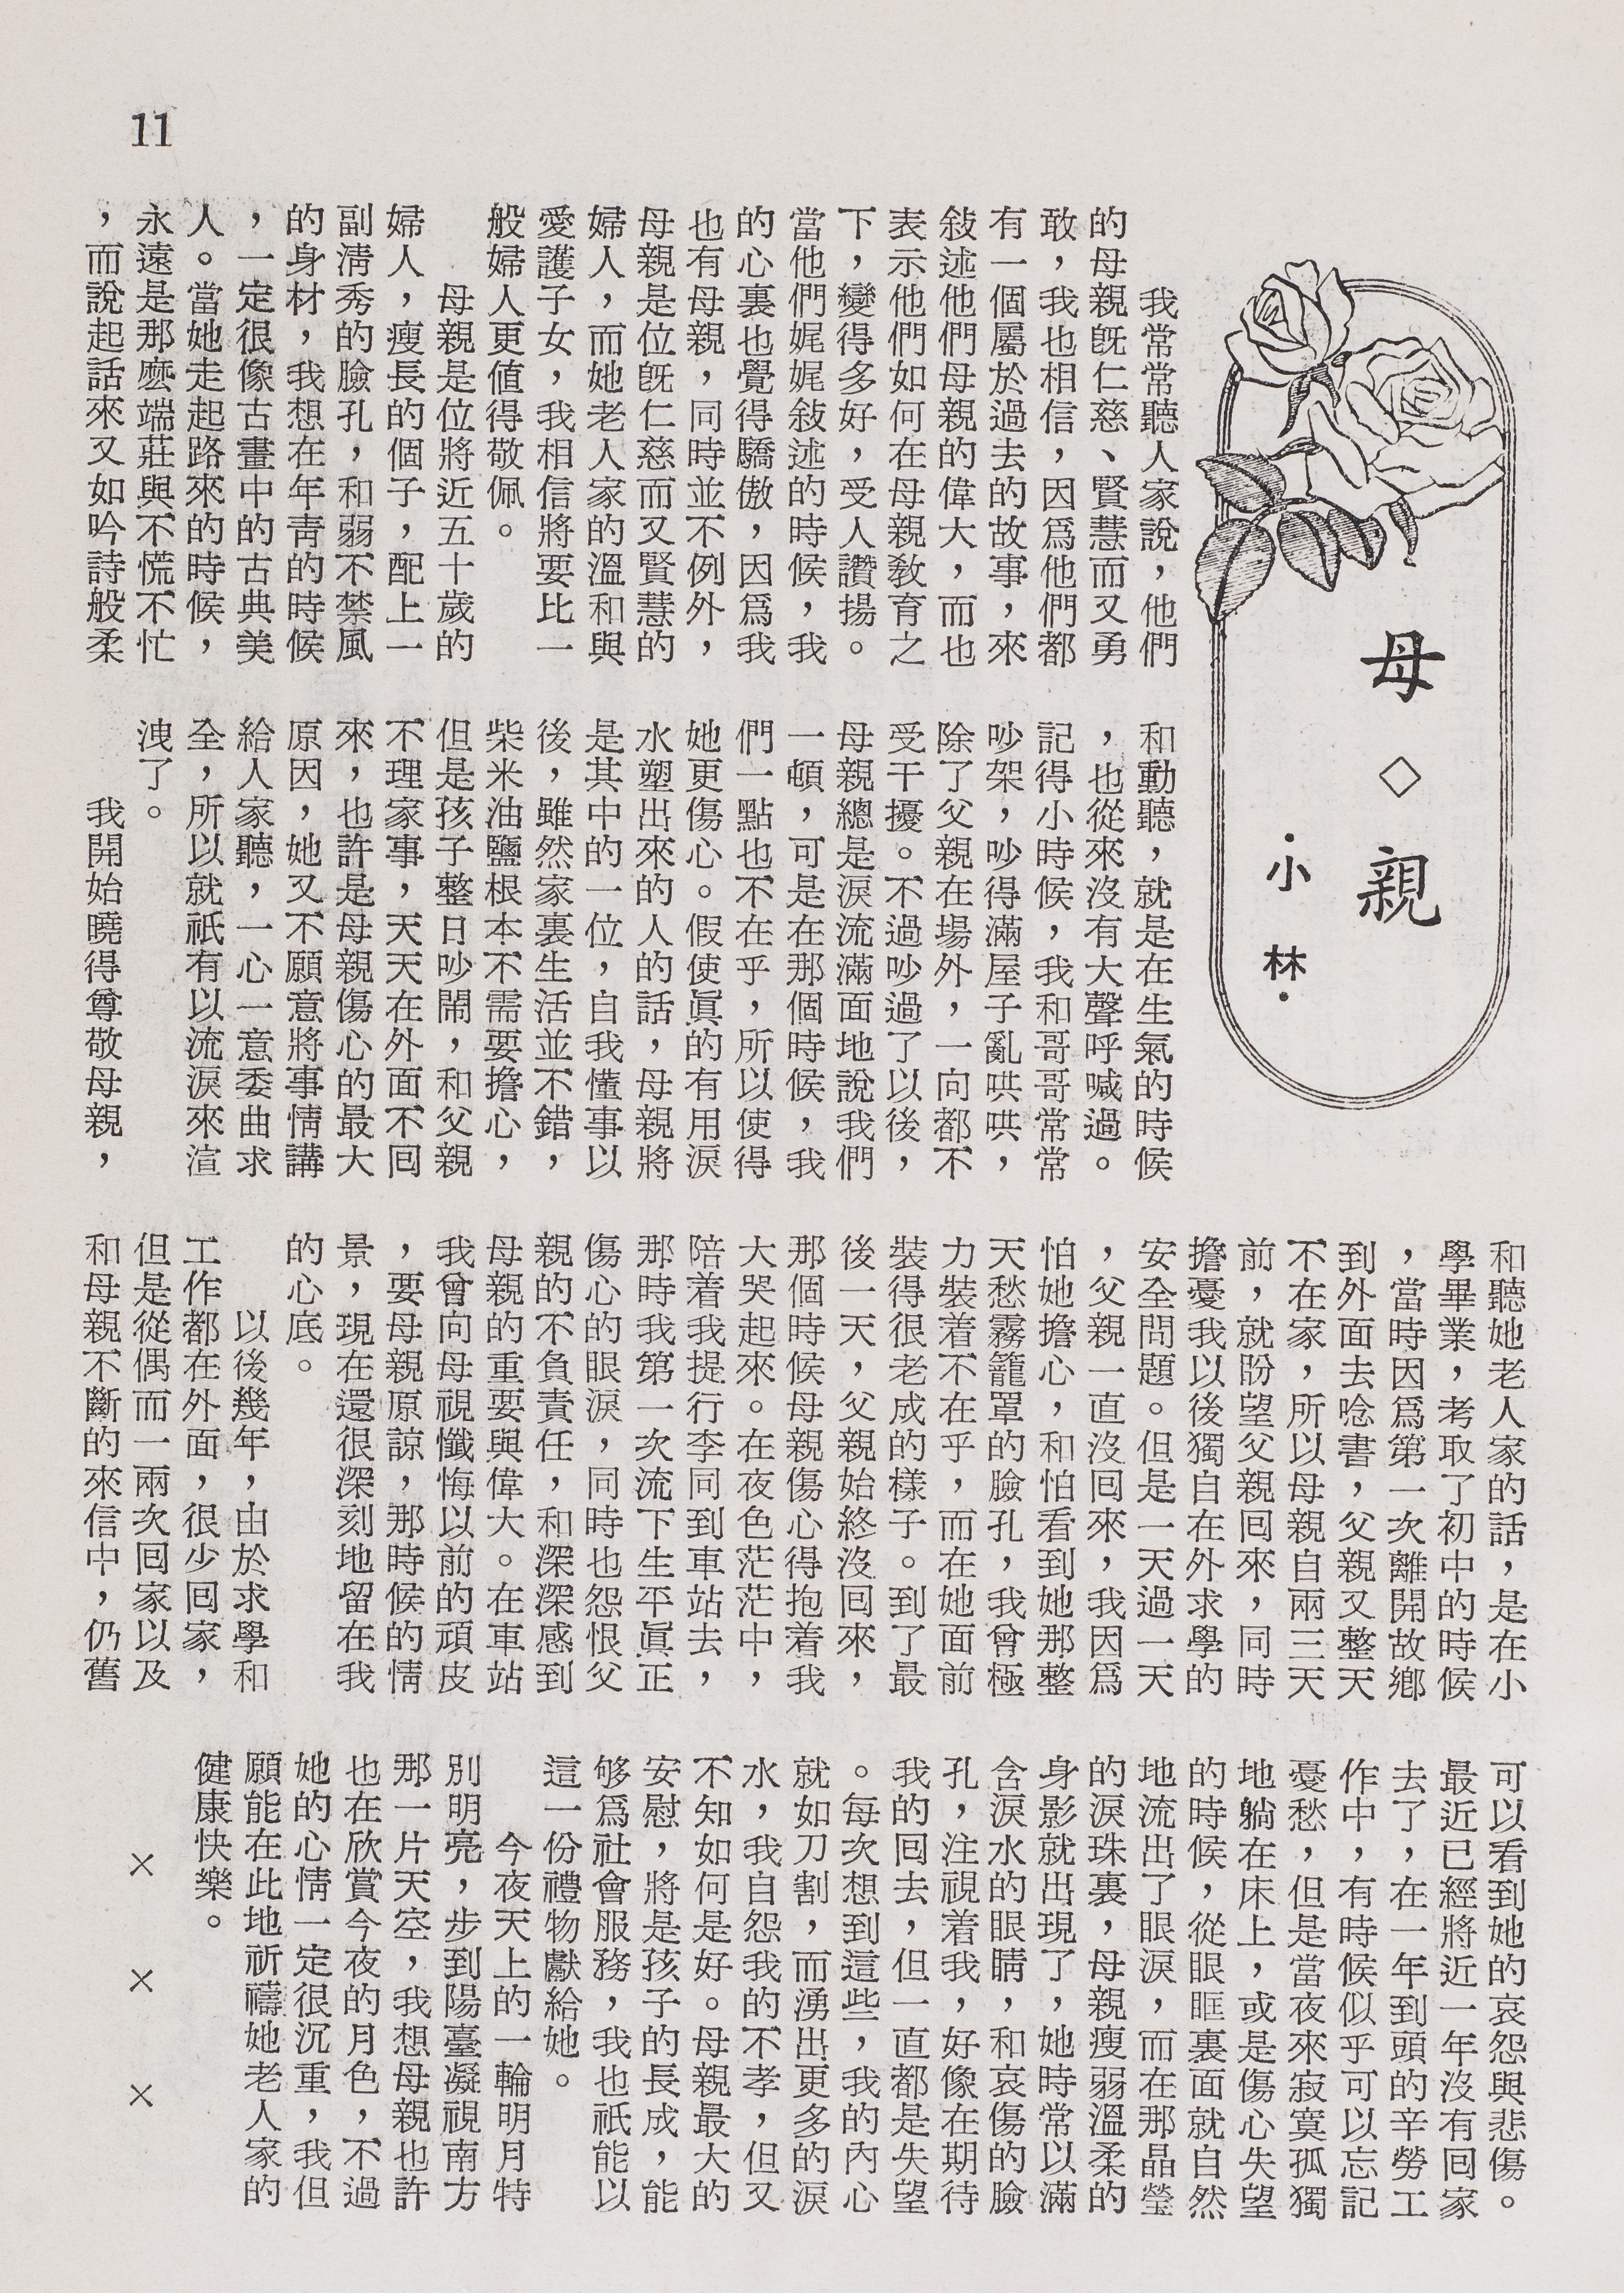 11
母◇親
·小林·
我常常聽人家說，他們
的母親既仁慈、賢慧而又勇
敢，我也相信，因爲他們都
有一個屬於過去的故事，來
敍述他們母親的偉大，而也
表示他們如何在母親教育之
下，變得多好，受人讚揚。
當他們娓娓敍述的時候，我
的心裏也覺得驕傲，因爲我
也有母親，同時並不例外，
母親是位既仁慈而又賢慧的
婦人，而她老人家的溫和與
愛護子女，我相信將要比一
般婦人更值得敬佩。
母親是位將近五十歲的
婦人，瘦長的個子，配上一
副淸秀的臉孔，和弱不禁風
的身材，我想在年靑的時候
，一定很像古畫中的古典美
人。當她走起路來的時候，
永遠是那麽端莊與不慌不忙
，而說起話來又如吟詩般柔
和動聽，就是在生氣的時候
，也從來沒有大聲呼喊過。
記得小時候，我和哥哥常常
吵架，吵得滿屋子亂哄哄，
除了父親在場外，一向都不
受干擾。不過吵過了以後，
母親總是淚流滿面地說我們
一頓，可是在那個時候，我
們一點也不在乎，所以使得
她更傷心。假使眞的有用淚
水塑出來的人的話，母親將
是其中的一位，自我懂事以
後，雖然家裏生活並不錯，
柴米油鹽根本不需要擔心，
但是孩子整日吵鬧，和父親
不理家事，天天在外面不回
來，也許是母親傷心的最大
原因，她又不願意將事情講
給人家聽，一心一意委曲求
全，所以就祇有以流淚來渲
洩了。
我開始曉得尊敬母親，
和聽她老人家的話，是在小
學畢業，考取了初中的時候
，當時因爲第一次離開故鄉
到外面去唸書，父親又整天
不在家，所以母親自兩三天
前，就盼望父親回來，同時
擔憂我以後獨自在外求學的
安全問題。但是一天過一天
，父親一直沒回來，我因爲
怕她擔心，和怕看到她那整
天愁霧籠罩的臉孔，我曾極
力裝着不在乎，而在她面前
裝得很老成的樣子。到了最
後一天，父親始終沒回來，
那個時候母親傷心得抱着我
大哭起來。在夜色茫茫中，
陪着我提行李同到車站去，
那時我第一次流下生平眞正
傷心的眼淚，同時也怨恨父
親的不負責任，和深深感到
母親的重要與偉大。在車站
我曾向母視懺悔以前的頑皮
，要母親原諒，那時候的情
景，現在還很深刻地留在我
的心底。
以後幾年，由於求學和
工作都在外面，很少回家，
但是從偶而一兩次回家以及
和母親不斷的來信中，仍舊
可以看到她的哀怨與悲傷。
最近已經將近一年沒有回家
去了，在一年到頭的辛勞工
作中，有時候似乎可以忘記
憂愁，但是當夜來寂寞孤獨
地躺在床上，或是傷心失望
的時候，從眼眶裏面就自然
地流出了眼淚，而在那晶瑩
的淚珠裏，母親瘦弱溫柔的
身影就出現了，她時常以滿
含淚水的眼睛，和哀傷的臉
孔，注視着我，好像在期待
我的回去，但一直都是失望
。每次想到這些，我的內心
就如刀割，而湧出更多的淚
水，我自怨我的不孝，但又
不知如何是好。母親最大的
安慰，將是孩子的長成，能
够爲社會服務，我也祇能以
這一份禮物獻給她。
今夜天上的一輪明月特
別明亮，步到陽臺凝視南方
那一片天空，我想母親也許
也在欣賞今夜的月色，不過
她的心情一定很沉重，我但
願能在此地祈禱她老人家的
健康快樂。
×　×　×